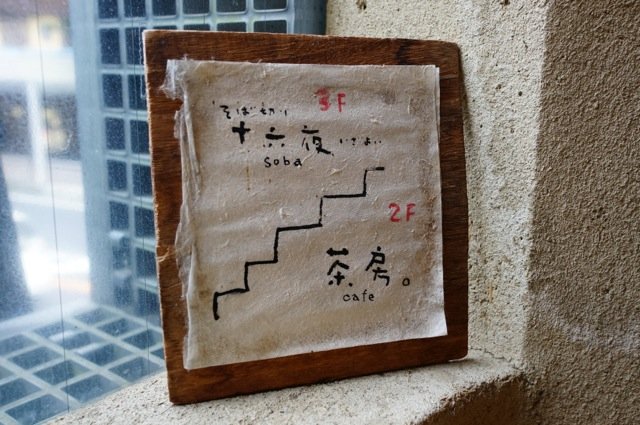 3F
そば切り
十六夜 いさよい
soba
2F
茶房。
cafe